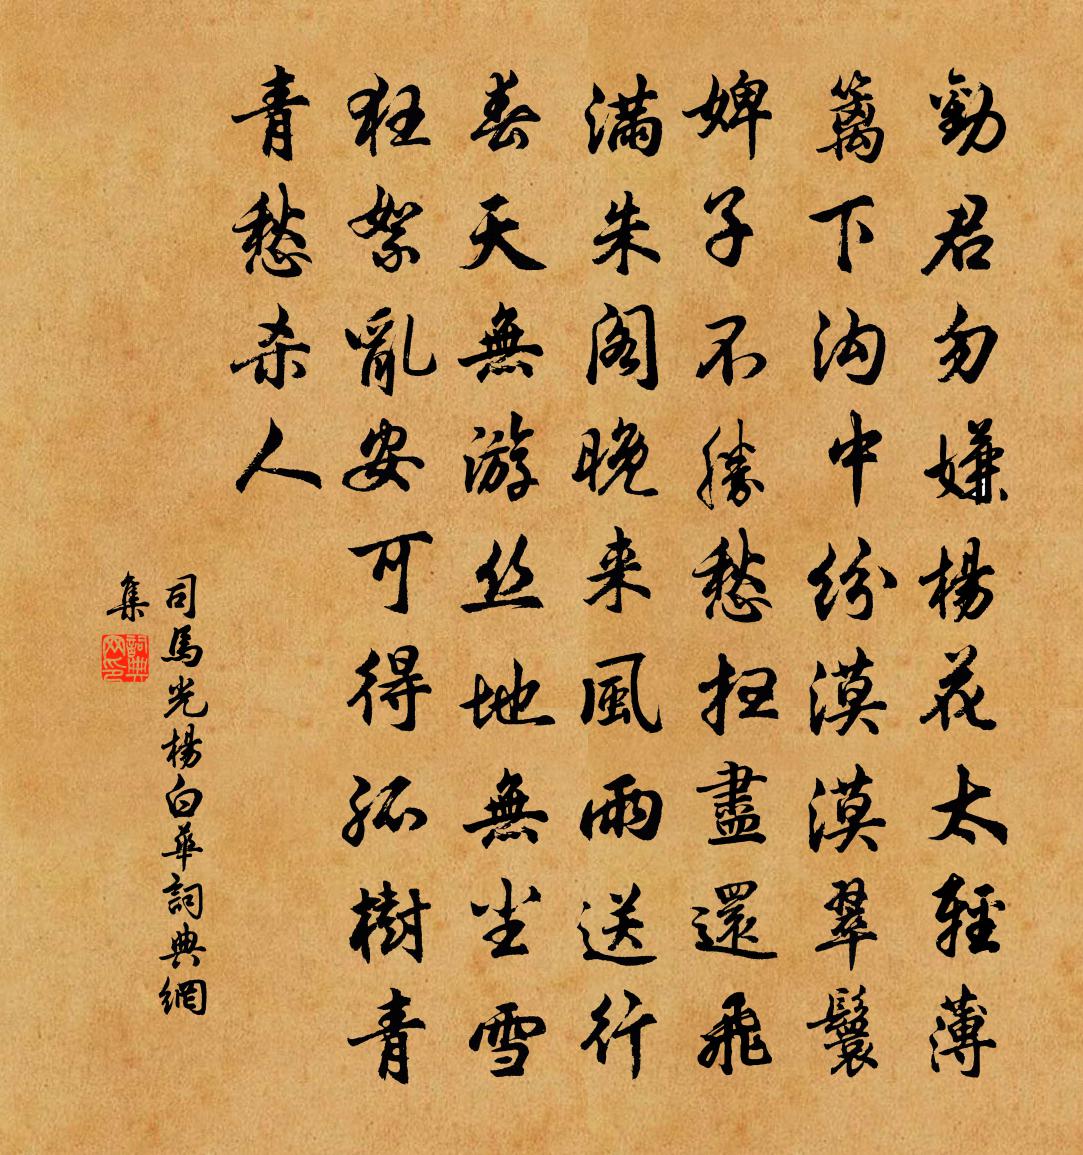 勸君勿嫌楊花太輕薄
篱下沟中紛漠漠翠鬟
婢子不勝愁扫盡還飛
滿朱閣晚来風雨送行
春天無游丝地無尘雪
狂絮亂安可得孤樹青
青愁杀人
司馬光楊白華詞典網
集
詞典網印